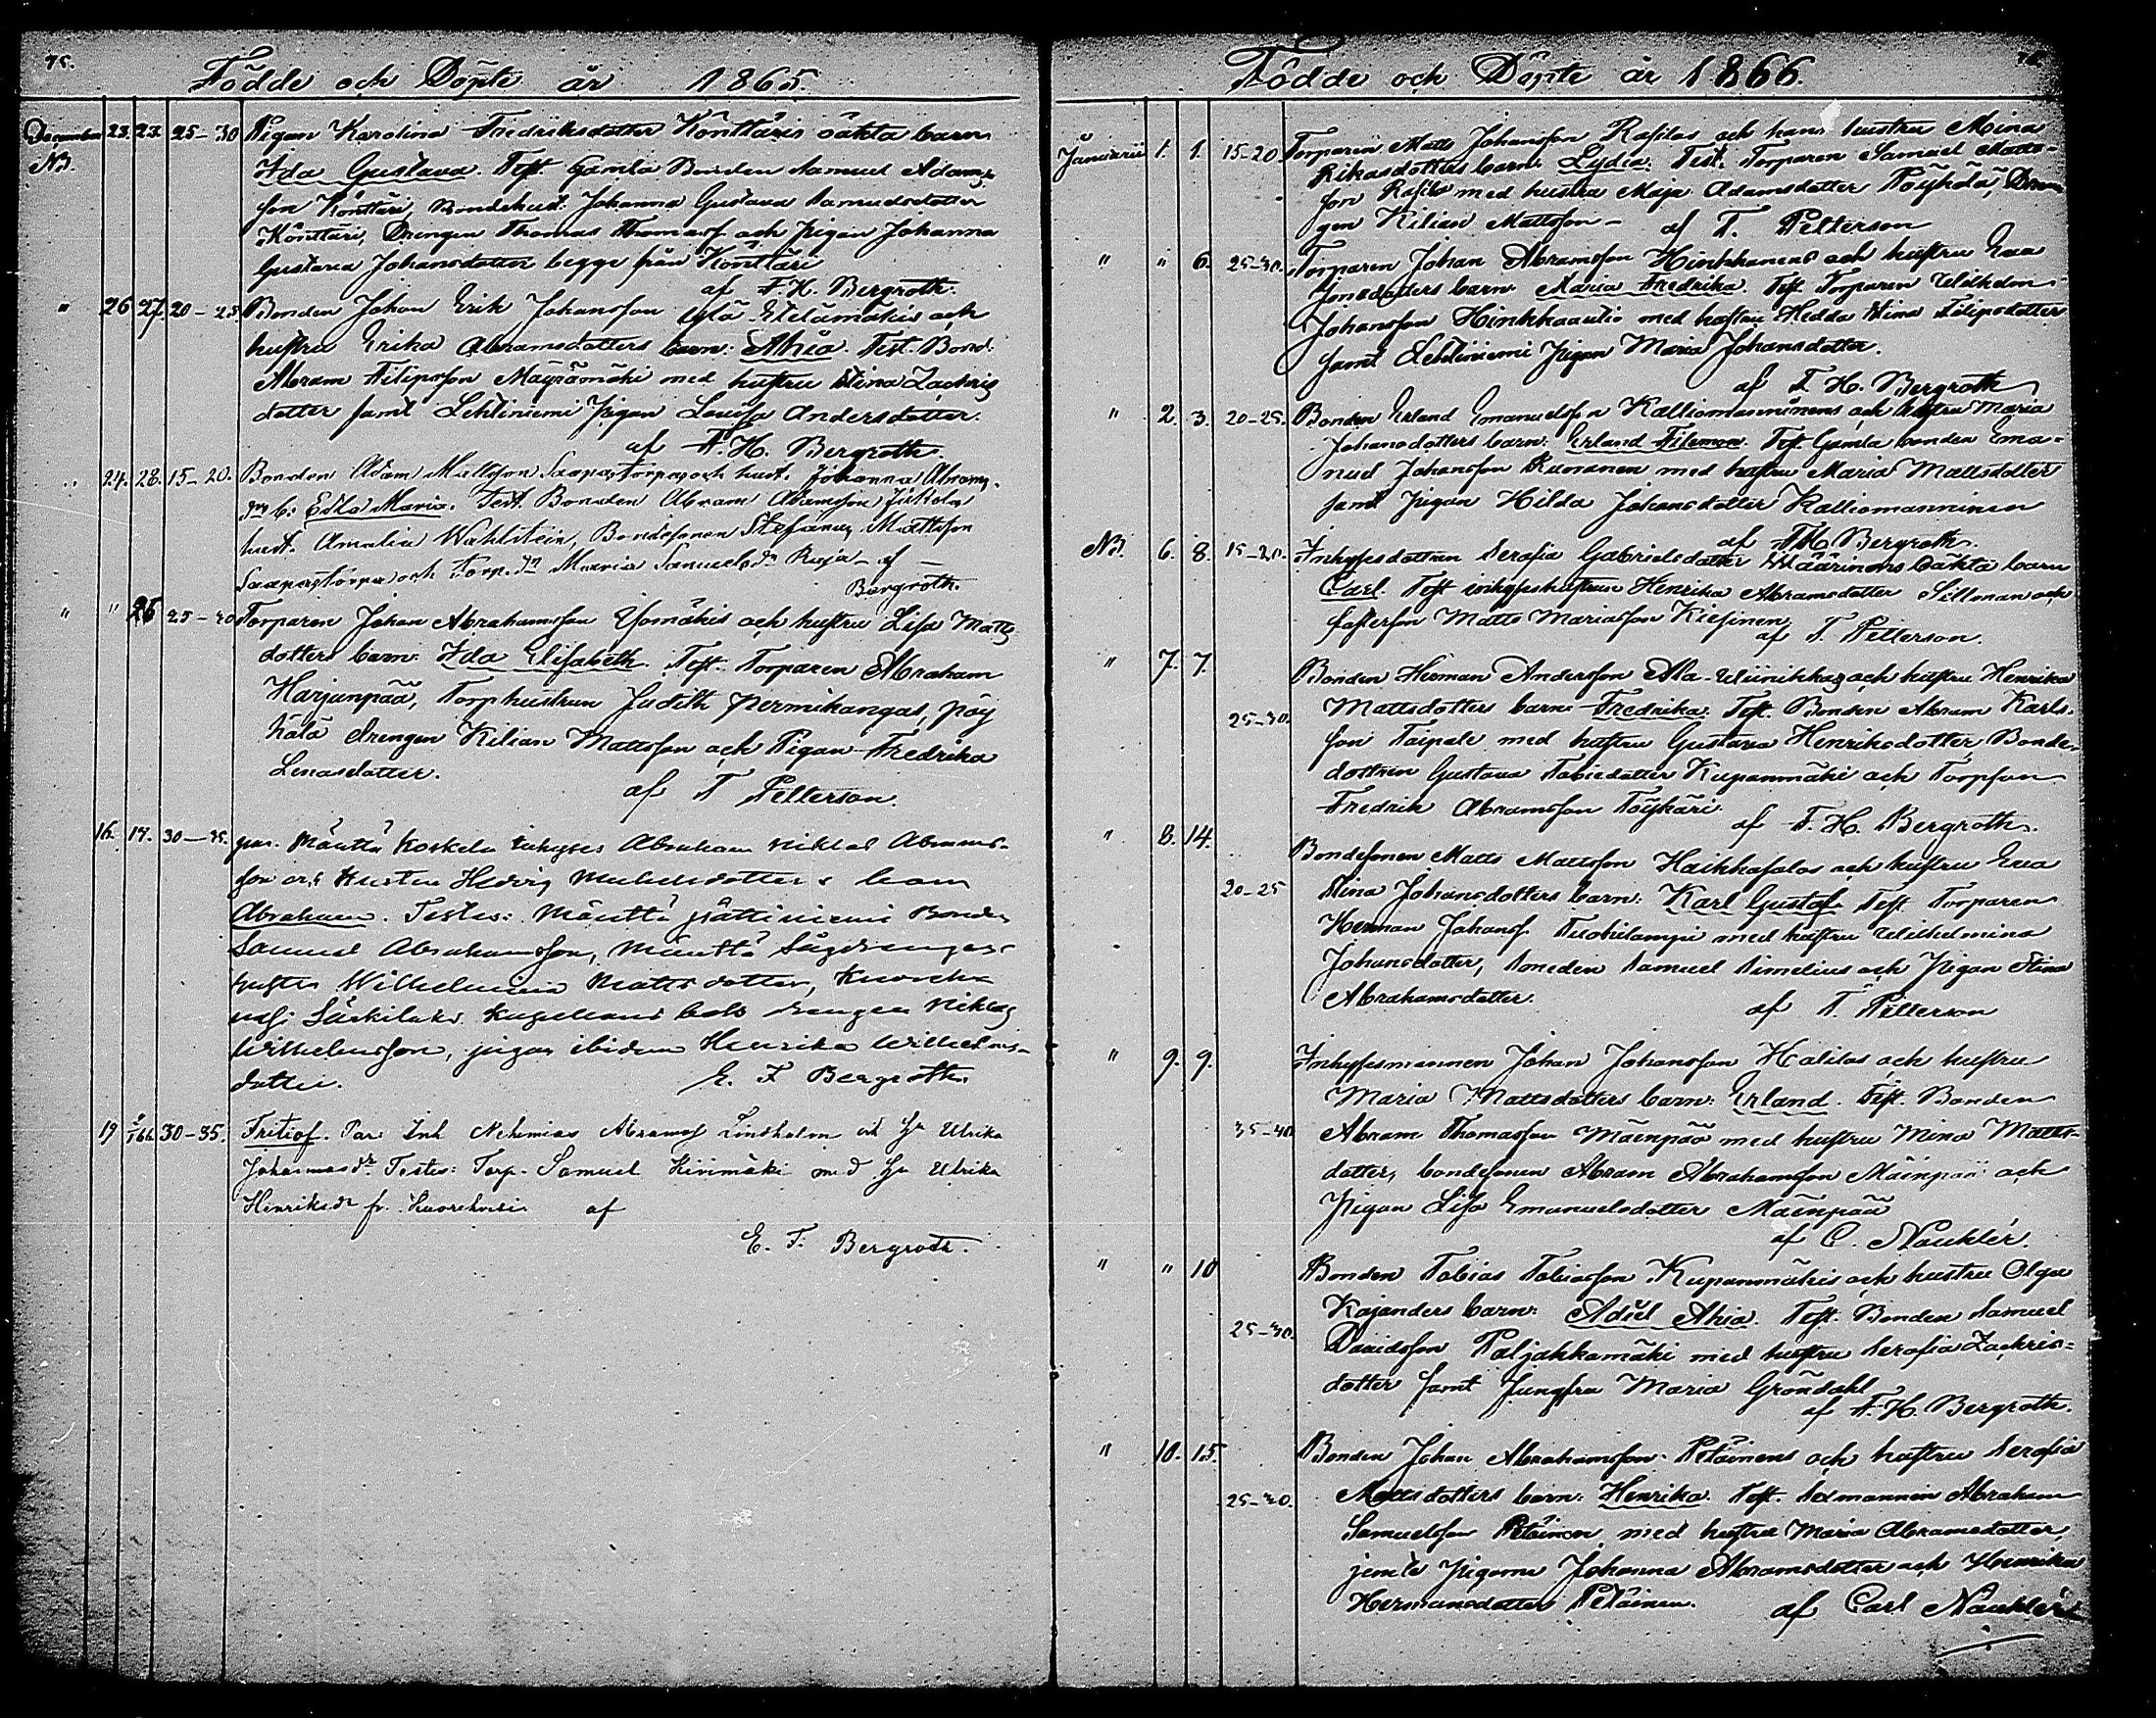 75.
Födde och Döpte år 1865.
December 23. 23. 25-30 Pigan Karolina Fredriksdotter Könttäris oäkta barn
NB. Ida Gustava. Test. Gamla Bonden Samuel Adams-
son Könttäri, Bondehust. Johanna Gustava Samuelsdotter
Könttäri, Drengen Thomas Thomass. och pigan Johanna
Gustava Johansdotter begge från Könttäri
af F. H. Bergroth.
" 26 27. 20-25. Bonden Johan Erik Johansson Ylä Etelämäkis och
hustru Erika Abramsdotters barn: Ahia. Test. Bond:
Abram Filipsson Mäyrämäki med hustru Stina Zachris
dotter samt Lehtiniemi Pigan Lovisa Andersdotter.
af F. H. Bergroth.
" 24. 28. 15-20. Bonden Adam Mattsson Saapastorpas och hust. Johanna Abrams-
b: Edla Maria. Test. Bonden Abram Adamsson Jukola
hust. Amalia Wahlstein, Bondesonen Stefanus Mattsson
Saapastorpa och Torp. Maria Samuelsdr Ruja- af -
Bergroth.
" " 26 25-30 Torparen Johan Abrahamsson Isomäkis och hustru Lisa Matts
dotters barn: Ida Elisabeth. Test. Torparen Abraham
Harjunpää, Torphustrun Judith Permikangas, Pöy
hölä drengen Kilian Mattsson och Pigan Fredrika
Lenasdotter.
af T. Petterson.
16. 17. 30-35. par. Mänttä Koskela inhyses Abraham Niklas Abrams-
son och Hustru Hedvig Michelsdotters barn
Abraham. Testes: Mänttä pättiniemi Bonde
Samuel Abrahamsson, Mänttä Sågdrenges
hustru Wilhelmina Mattsdotter, Kuoreh
Särkilaks bols drengen Niklas
Wilhelmsson, pigan ibidem Henrika Wilhelms-
dotter.
E. F Bergroth.
19 30-35. Fritiof. Par: Inh Nehemias Abramss Lindholm och hu Ulrika
Johannesdr Testes: Torp. Samuel Kivimäki med hu Ulrika
Henriksdr fr. Kuorehvesi af
E. F. Bergroth.
76
Födde och Döpte år 1866.
Januarii 1. 1. 15-20 Torparen Matts Johansson Rasilas och hans hustru Mina
Rikasdotters barn: Lydia. Test. Torparen Samuel Matts-
son Rasila med hustru Maja Adamsdotter Pöyhölä, Dren
gen Kilian Mattsson- af T. Petterson
" " 6. 25-30. Torparen Johan Abramsson Hinkkanens och hustru Eva
Jonasdotters barn Maria Fredrika. Test. Torparen Wilhelm
Johansson Hinkkaautio med hustru Hedda Stina Filipsdotter
samt Lehtiniemi Pigan Maria Johansdotter.
af F. H. Bergroth
" 2. 3. 20-25. Bonden Erland Emanuelsson Kalliomanninens och hustru Maria
Johansdotters barn: Erland Filemon. Test. Gamla bonden Ema-
nuel Johansson Kunonen med hustru Maria Mattsdotter
samt Pigan Hilda Johansdotter Kalliomanninen
af F. H. Bergroth.
NB. 6. 8. 15-20. Inhysesdottren Serafia Gabrielsdotter Määrinens oäkta barn
Carl. Test inhyseshustrun Henrika Abramsdotter Sillman och
fostersson Matts Mariasson Kiesinen
af T. Petterson.
" 7. 7. Bonden Herman Andersson Ala-Wiinikkas och hustru Henrika
25-30. Mattsdotters barn Fredrika. Test. Bonden Abram Karls-
son Taipale med hustru Gustava Henriksdotter Bonde-
dottren Gustava Tobiedotter Kupanmäki och Torpson
Fredrik Abramsson Töyhäri
af F. H. Bergroth.
" 8. 14. Bondesonen Matts Mattsson Haikkasalos och hustru Eva
20-25 Stina Johansdotters barn: Karl Gustaf Test. Torparen
Herman Johanss. Tuohilampi med hustru Wilhelmina
Johansdotter, Smeden Samuel Simelius och Pigan Stina
Abrahamsdotter. af T. Petterson
" 9. 9. Inhysesmannen Johan Johansson Halilas och hustru
Maria Mattsdotters barn: Erland. Test. Bonden
35-40 Abram Thomasson Mäenpää med hustru Mina Matts-
dotter, bondesonen Abram Abrahamsson Mäenpää och
Pigan Lisa Emanuelsdotter Mäenpää
af C. Nauklér.
" " 10 Bonden Tobias Tobiasson Kupanmäkis och hustru Olga
Kajanders barn: Adiel Ahia. Test. Bonden Samuel
25-30. Davidsson Paljakkamäki med hustru Serafia Zachris-
dotter samt Jungfru Maria Gröndahl
af F. H. Bergroth.
" 10. 15. Bonden Johan Abrahamsson Petäinens och hustru Serafia
25-30. Mattsdotters barn: Henrika. Test. Sexmannen Abraham
Samuelsson Petäinen med hustru Maria Abramsdotter
jemte Pigorna Johanna Abramsdotter och Henrika
Hermansdotter Petäinen. af Carl Nauklér